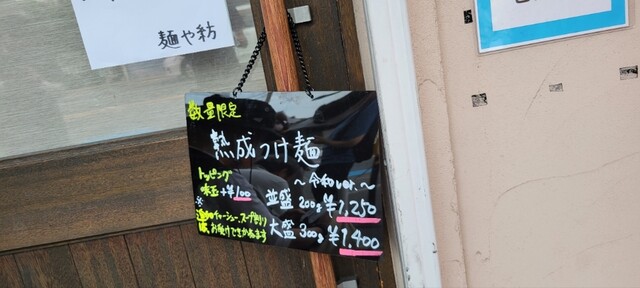 麺や紡
数量限定
熟成つけ麺
〜令和ver.〜
トッピング
味玉+¥100
並盛 200g ¥1,250
大盛 300g ¥1,400
※
チャーシュー、スープ割り
お受けできかねます